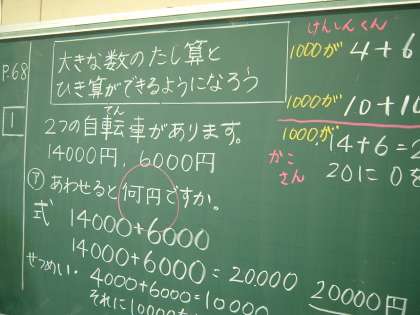 P.68
1
大きな数のたし算と
ひき算ができるようになろう
2つの自転車があります。
てん
14000円, 6000円
㋐ あわせると何円ですか。
式 14000+6000
14000+6000=20000
せつめい・4000+6000=10000
それに10000
20000円
けんしんくん
1000が 4+6
1000が 10+1
1000が 14+6=2
かこ
さん
20に0を